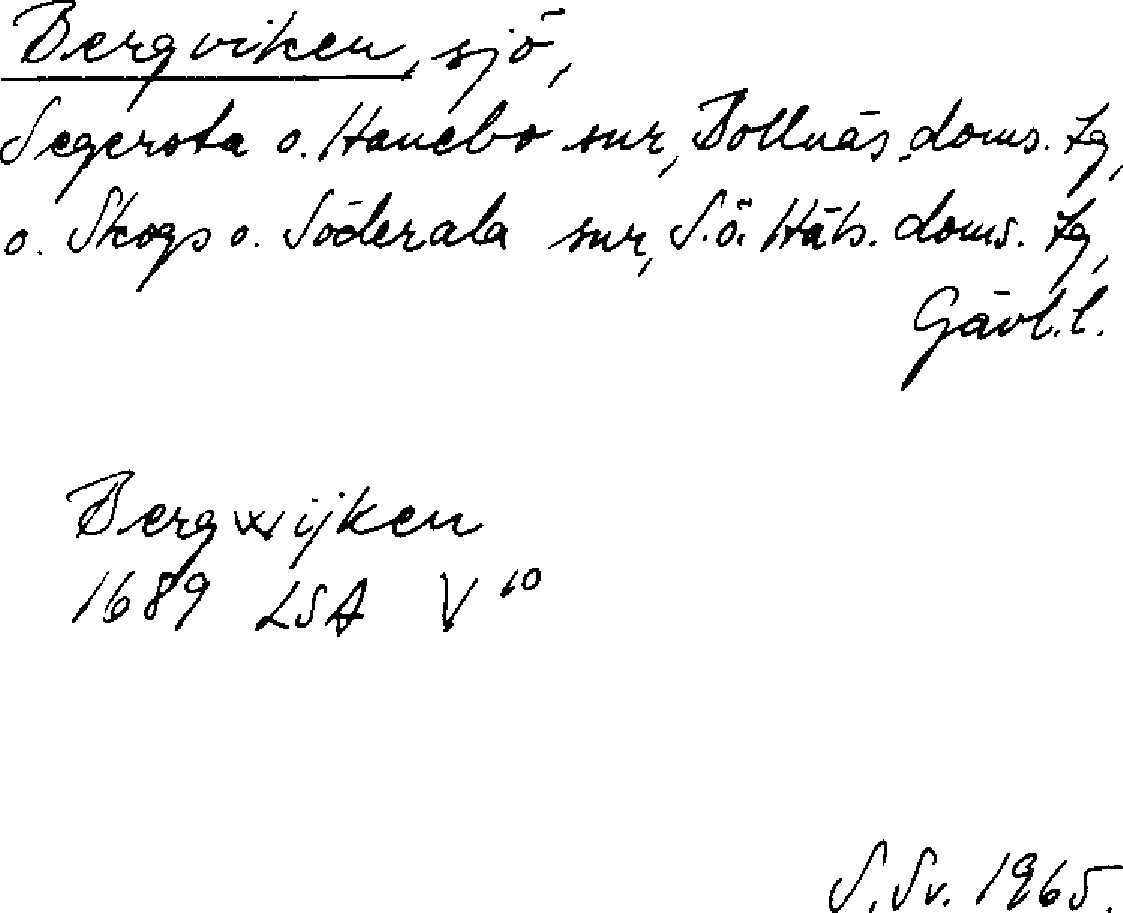 Bergviken, sjö,
Segersta o. Hanebo snr, Bollnäs doms. tg,
o. Skogs o. Söderala snr, S.ö. Häls. doms. tg,
Gävl. l.
Bergwijken
1689 LSA V 10
S. Sv. 1965.